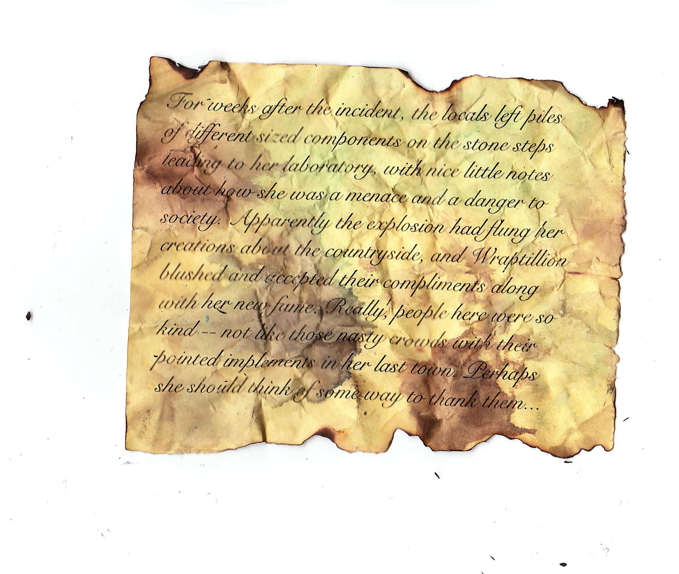 For weeks after the incident, the locals left piles
of different sized components on the stone steps
leading to her laboratory, with nice little notes
about how she was a menace and a danger to
society. Apparently the explosion had flung her
creations about the countryside, and Wraptillion
blushed and accepted their compliments along
with her new fame. Really, people here were so
kind -- not like those nasty crowds with their
pointed implements in her last town. Perhaps
she should think of some way to thank them...